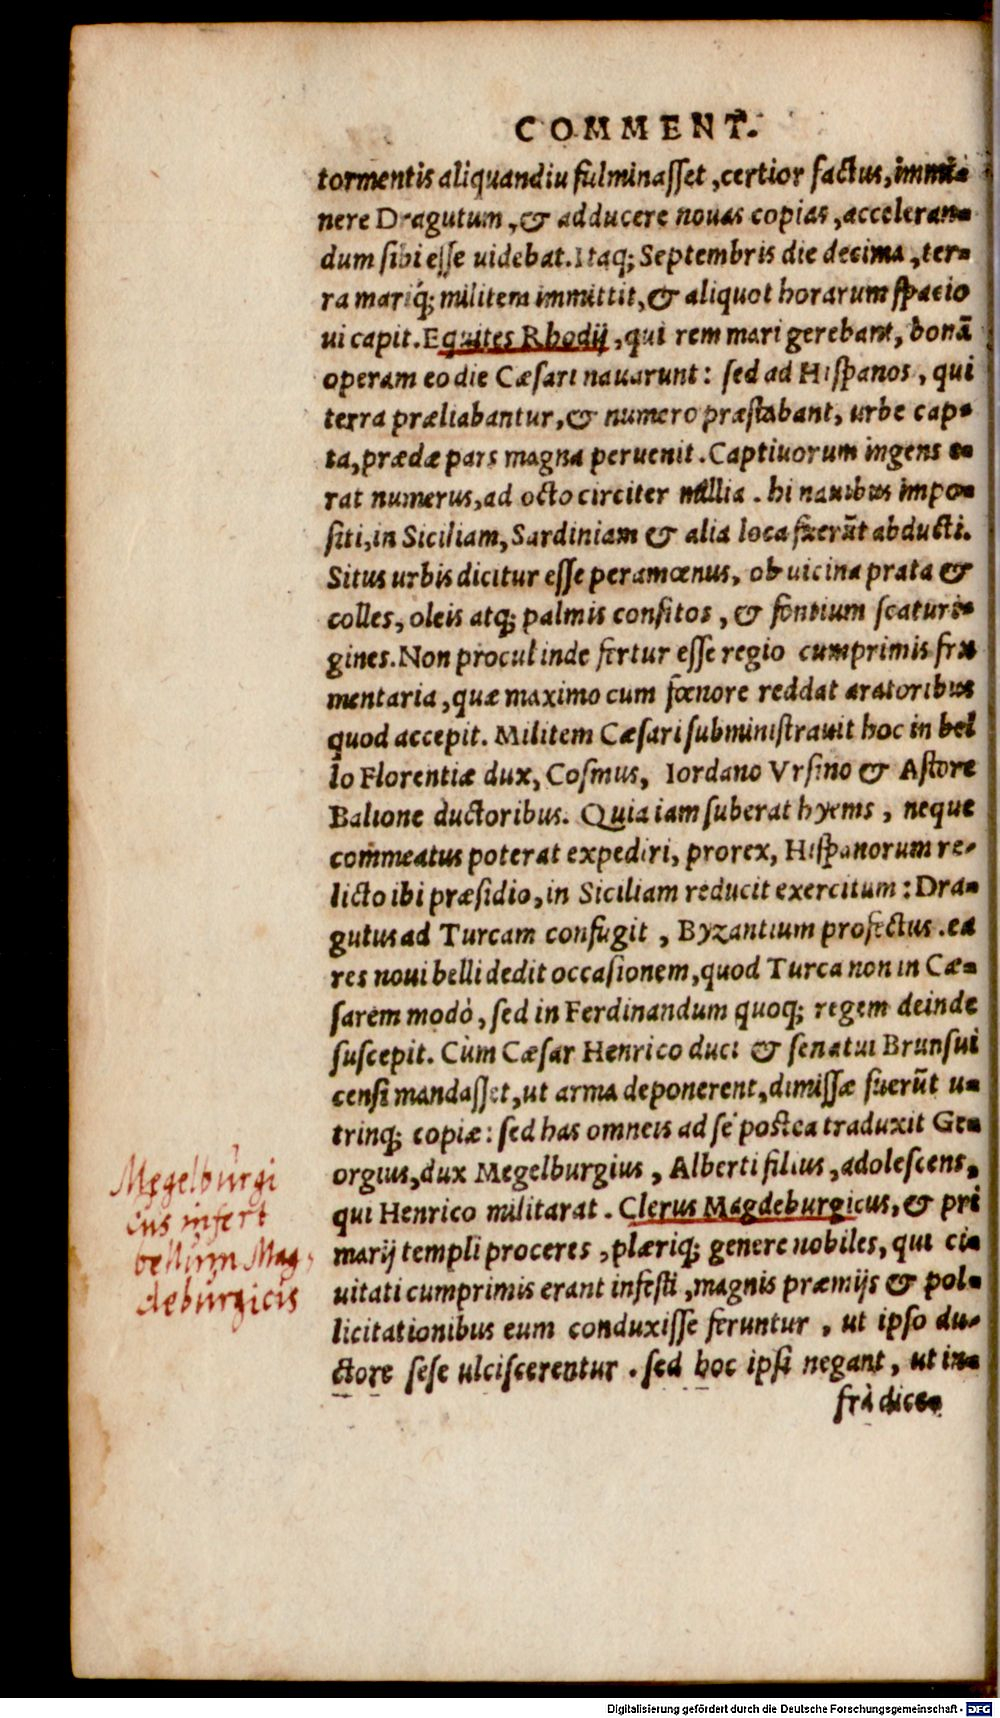 COMMENT.
tormentis aliquandiu fulminasset, certior factus, immi-
nere Dragutum, & adducere nouas copias, acceleran-
dum sibi esse uidebat. Itaq; Septembris die decima, ter-
ra mariq́; militem immittit, & aliquot horarum spacio
ui capit. Equites Rhodij, qui rem mari gerebant, bonā
operam eo die Cæsari nauarunt: sed ad Hispanos, qui
terra præliabantur, & numero præstabant, urbe cap-
ta, prædæ pars magna peruenit. Captiuorum ingens e-
rat numerus, ad octo circiter millia. hi nauibus impo-
siti, in Siciliam, Sardiniam & alia loca fuerūt abducti.
Situs urbis dicitur esse peramœnus, ob uicina prata &
colles, oleis atq; palmis consitos, & fontium scaturi-
gines. Non procul inde fertur esse regio cumprimis fru
mentaria, quæ maximo cum fœnore reddat aratoribus
quod accepit. Militem Cæsari subministrauit hoc in bel
lo Florentiæ dux, Cosmus, Iordano Vrsino & Astore
Balione ductoribus. Quia iam suberat hyems, neque
commeatus poterat expediri, prorex, Hispanorum re-
licto ibi præsidio, in Siciliam reducit exercitum: Dra-
gutus ad Turcam confugit, Byzantium profectus. ea
res noui belli dedit occasionem, quod Turca non in Cæ-
sarem modò, sed in Ferdinandum quoq; regem deinde
suscepit. Cùm Cæsar Henrico duci & senatui Brunsui
censi mandasset, ut arma deponerent, dimissæ fuerūt u-
trinq; copiæ: sed has omneis ad se postea traduxit Ge-
orgius, dux Megelburgius, Alberti filius, adolescens,
qui Henrico militarat. Clerus Magdeburgicus, & pri
marij templi proceres, plæriq; genere nobiles, qui ci-
uitati cumprimis erant infesti, magnis præmijs & pol-
licitationibus eum conduxisse feruntur, ut ipso du-
ctore sese ulciscerentur. sed hoc ipsi negant, ut in-
frà dice-
Megelburgi
cus infert
bellum Mag,
deburgicis
Digitalisierung gefördert durch die Deutsche Forschungsgemeinschaft - DFG